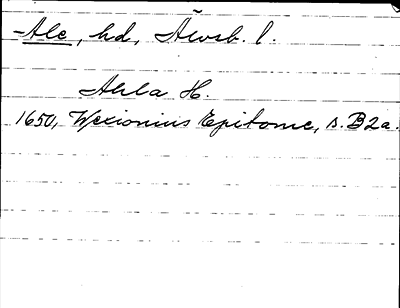 -Ale, hd, Åvsb. l.
Ahla H.
1650, Wexionius Epitome, s. B2a.